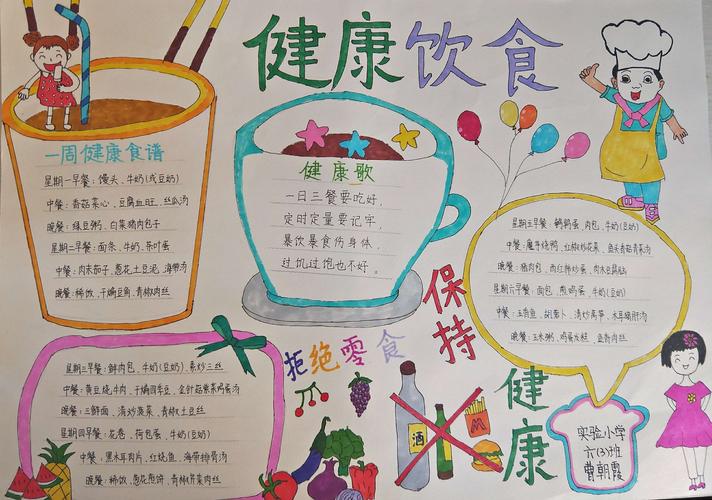 健康饮食
一周健康食谱
星期一早餐:馒头、牛奶(或豆奶)
中餐:香菇菜心、豆腐血旺、丝瓜汤
晚餐:绿豆粥、白菜猪肉包子
星期二早餐:面条、牛奶、茶叶蛋
中餐:肉末茄子、葱花土豆泥、海带汤
晚餐:稀饭、干煸豆角、青椒肉丝
健康歌
一日三餐要吃好,
定时定量要记牢,
暴饮暴食伤身体,
过饥过饱也不好。
星期五早餐:鹌鹑蛋、肉包、牛奶(豆奶)
中餐:魔芋烧鸭、红椒炒花菜、鱼头香菇青菜汤
晚餐:猪肉包、西红柿炒蛋、肉末豆腐脑
星期六早餐:面包、煎鸡蛋、牛奶(豆奶)
中餐:五香鱼、胡萝卜、清炒莴笋、木耳猪肝汤
晚餐:玉米粥、鸡蛋发糕、鱼香肉丝
保持
健康
拒绝零食
星期三早餐:鲜肉包、牛奶(豆奶)、素炒三丝
中餐:黄豆烧牛肉、干煸四季豆、金针菇紫菜鸡蛋汤
晚餐:三鲜面、清炒菠菜、青椒土豆丝
星期四早餐:花卷、荷包蛋、牛奶(豆奶)
中餐:黑木耳肉片、红烧鱼、海带排骨汤
晚餐:稀饭、葱花煎饼、青椒芹菜肉丝
酒
M
实验小学
六(3)班
曹朝霞